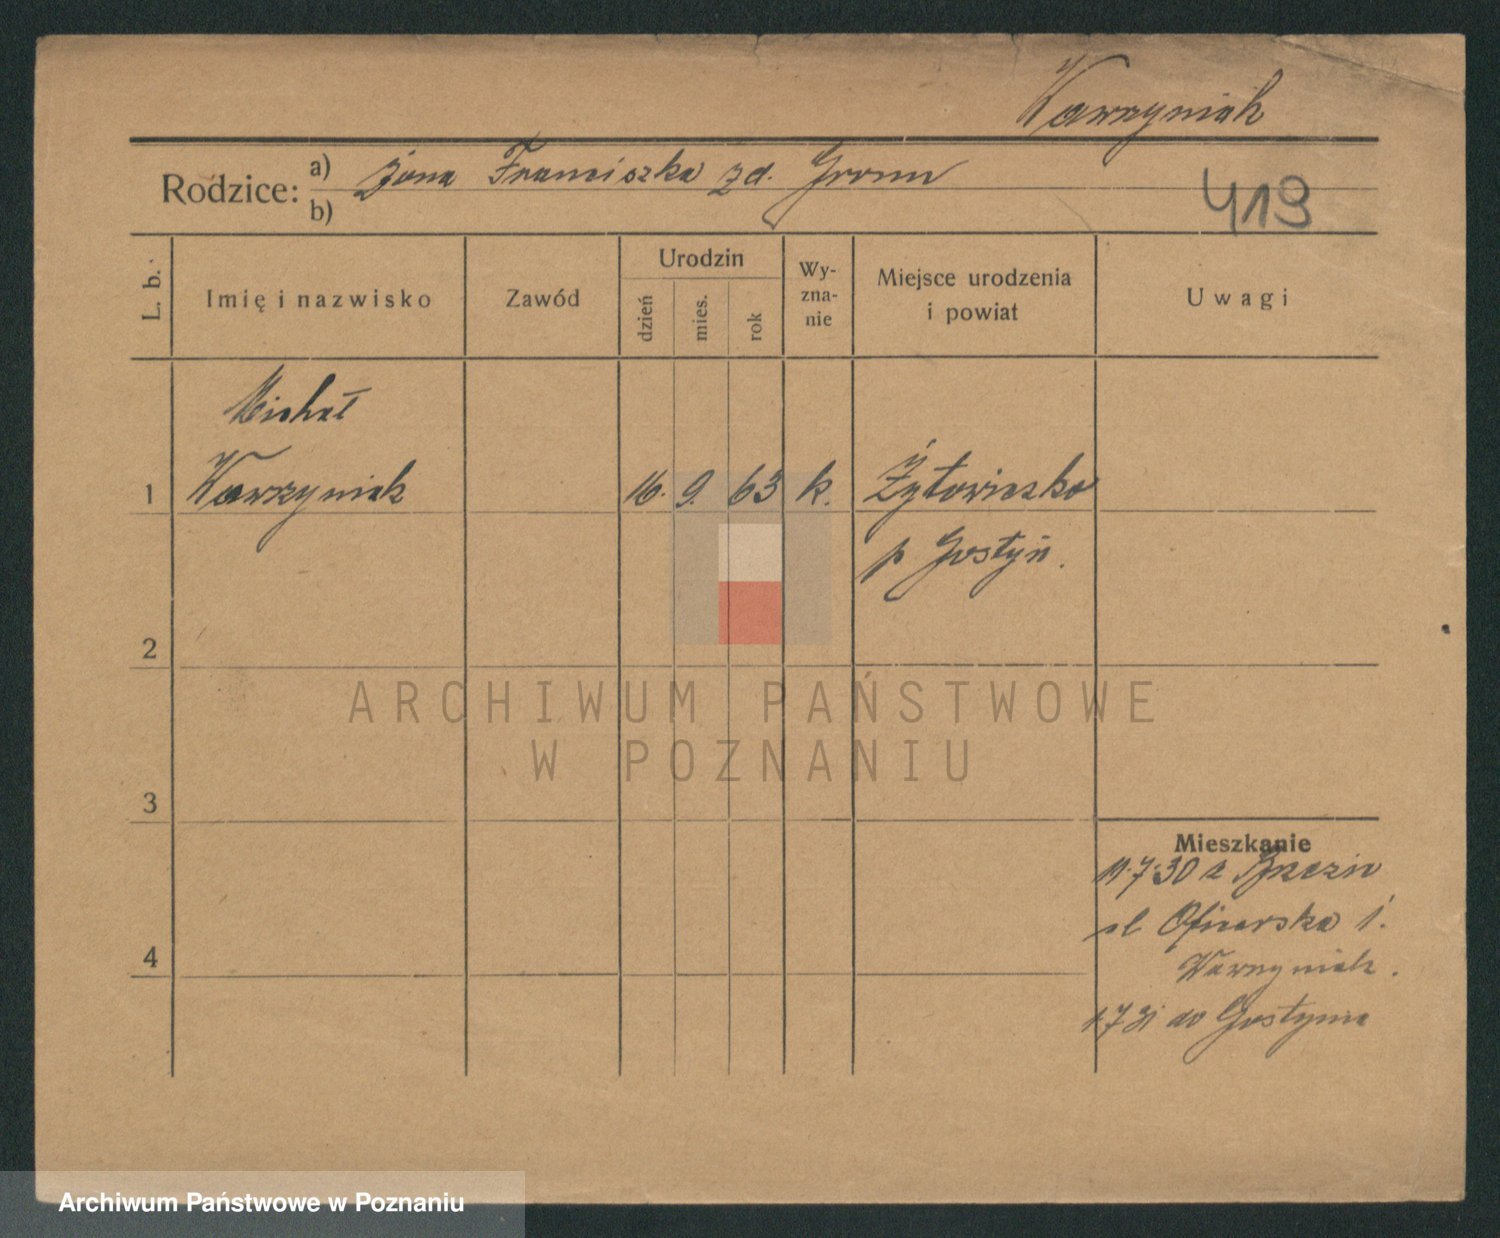 Wawrzyniak
Rodzice: a) żona Franciszka zd. Gronn
b)
419
L. b.
Imię i nazwisko
Zawód
Urodzin
dzień
mies.
rok
Wy-
zna-
nie
Miejsce urodzenia
i powiat
Uwagi
Michał
1 Wawrzyniak 16. 9. 63 k. Żytowiecko
p Gostyń.
2
ARCHIWUM PAŃSTWOWE
W POZNANIU
3
Mieszkanie
11.7.30 z Brezin
ul Oficerska 1.
Wawrzyniak.
4
1.7 31 do Gostynia
Archiwum Państwowe w Poznaniu